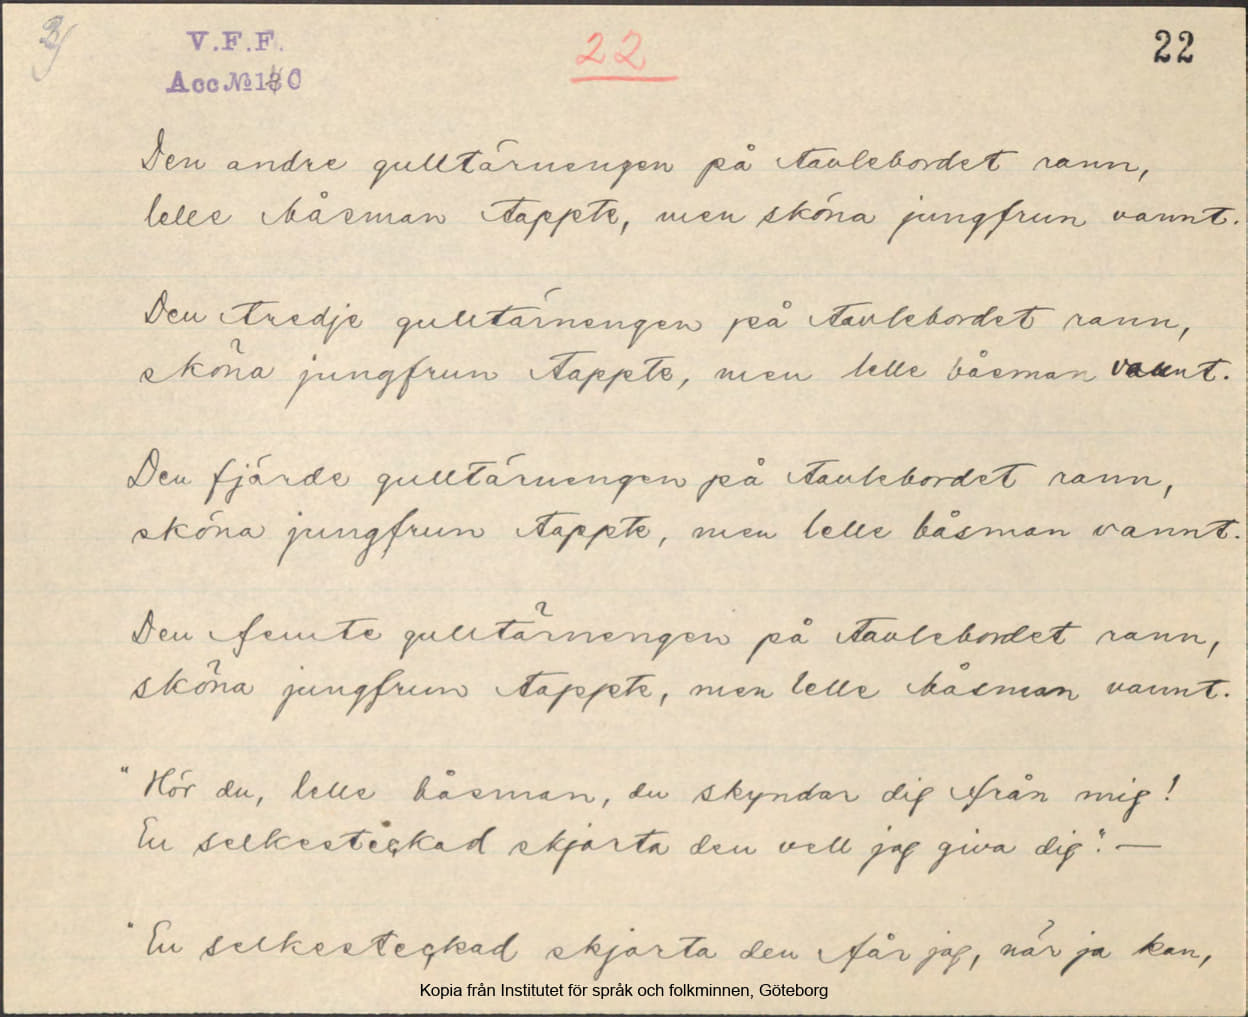 3)
V.F.F.
Acc № 140
22
22
Den andre gulltärnengen på tavlebordet rann,
lelle båsman tappte, men sköna jungfrun vannt.
Den tredje gulltärnengen på tavlebordet rann,
sköna jungfrun tappte, men lelle båsman vannt.
Den fjärde gulltärnengen på tavlebordet rann,
sköna jungfrun tappte, men lelle båsman vannt.
Den femte gulltärnengen på tavlebordet rann,
sköna jungfrun tappte, men lelle båsman vannt.
"Hör du, lelle båsman, du skyndar dig från mig!
En selkesteckad skjorta den vell jag giva dig". —
"En selkesteckad skjorta den får jag, när ja kan,
Kopia från Institutet för språk och folkminnen, Göteborg